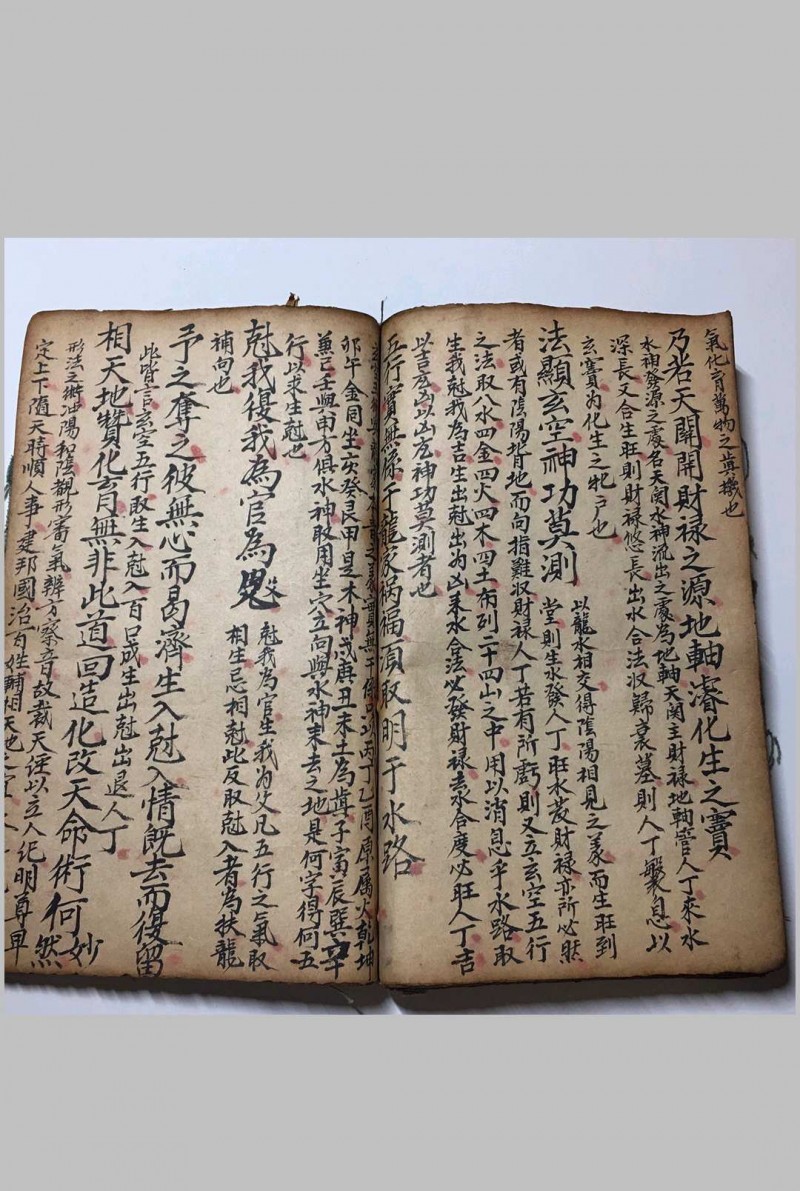 氣化育萬物之真機也
乃若天關開財禄之源地軸濬化生之竇
水神發源之處名天関水神流出之處為地軸天関主財禄地軸管人丁來水
深長又合生旺則財禄悠長出水合法収歸衰墓則人丁息以
玄竇为化生之牝户也
法顯玄空神功莫測
以龍水相交得陰陽相見之義而生旺到
堂則生水發人丁旺水發財禄亦所必然
者或有陰陽背地而向指難収財禄人丁若有所虧則又立玄空五行
之法取八水四金四火四木四土布列二十四山之中用以消息乎水路取
生我尅我為吉生出尅出为凶来水合法必發財禄去水合度必旺人丁吉
以吉应凶以凶应神功莫測者也
五行實無係于龍家禍福須取明于水路
之義實無干係只以丙丁乙酉原属火乾坤
卯午金同坐亥癸艮甲是木神戌庚丑未土為子寅辰巽辛
兼己壬與申方俱水神取用坐穴立向與水神来去之地是何字得何五
行以求生尅也
尅我復我為官為鬼
尅我為官生我为父凡五行之氣取
相生忌相尅此反取尅入者為扶龍
補向也
予之奪之彼無心而曷濟生入尅入情既去而復留
此皆言玄空五行取生入尅入百口成生出尅出退人丁
相天地贊化育無非此道回造化改天命術何妙然
形法之術冲陽和陰觀形審氣辨方察音故裁天程以立人紀明尊卑
定上下隨天時順人事建邦國治百姓輔相天地之宜